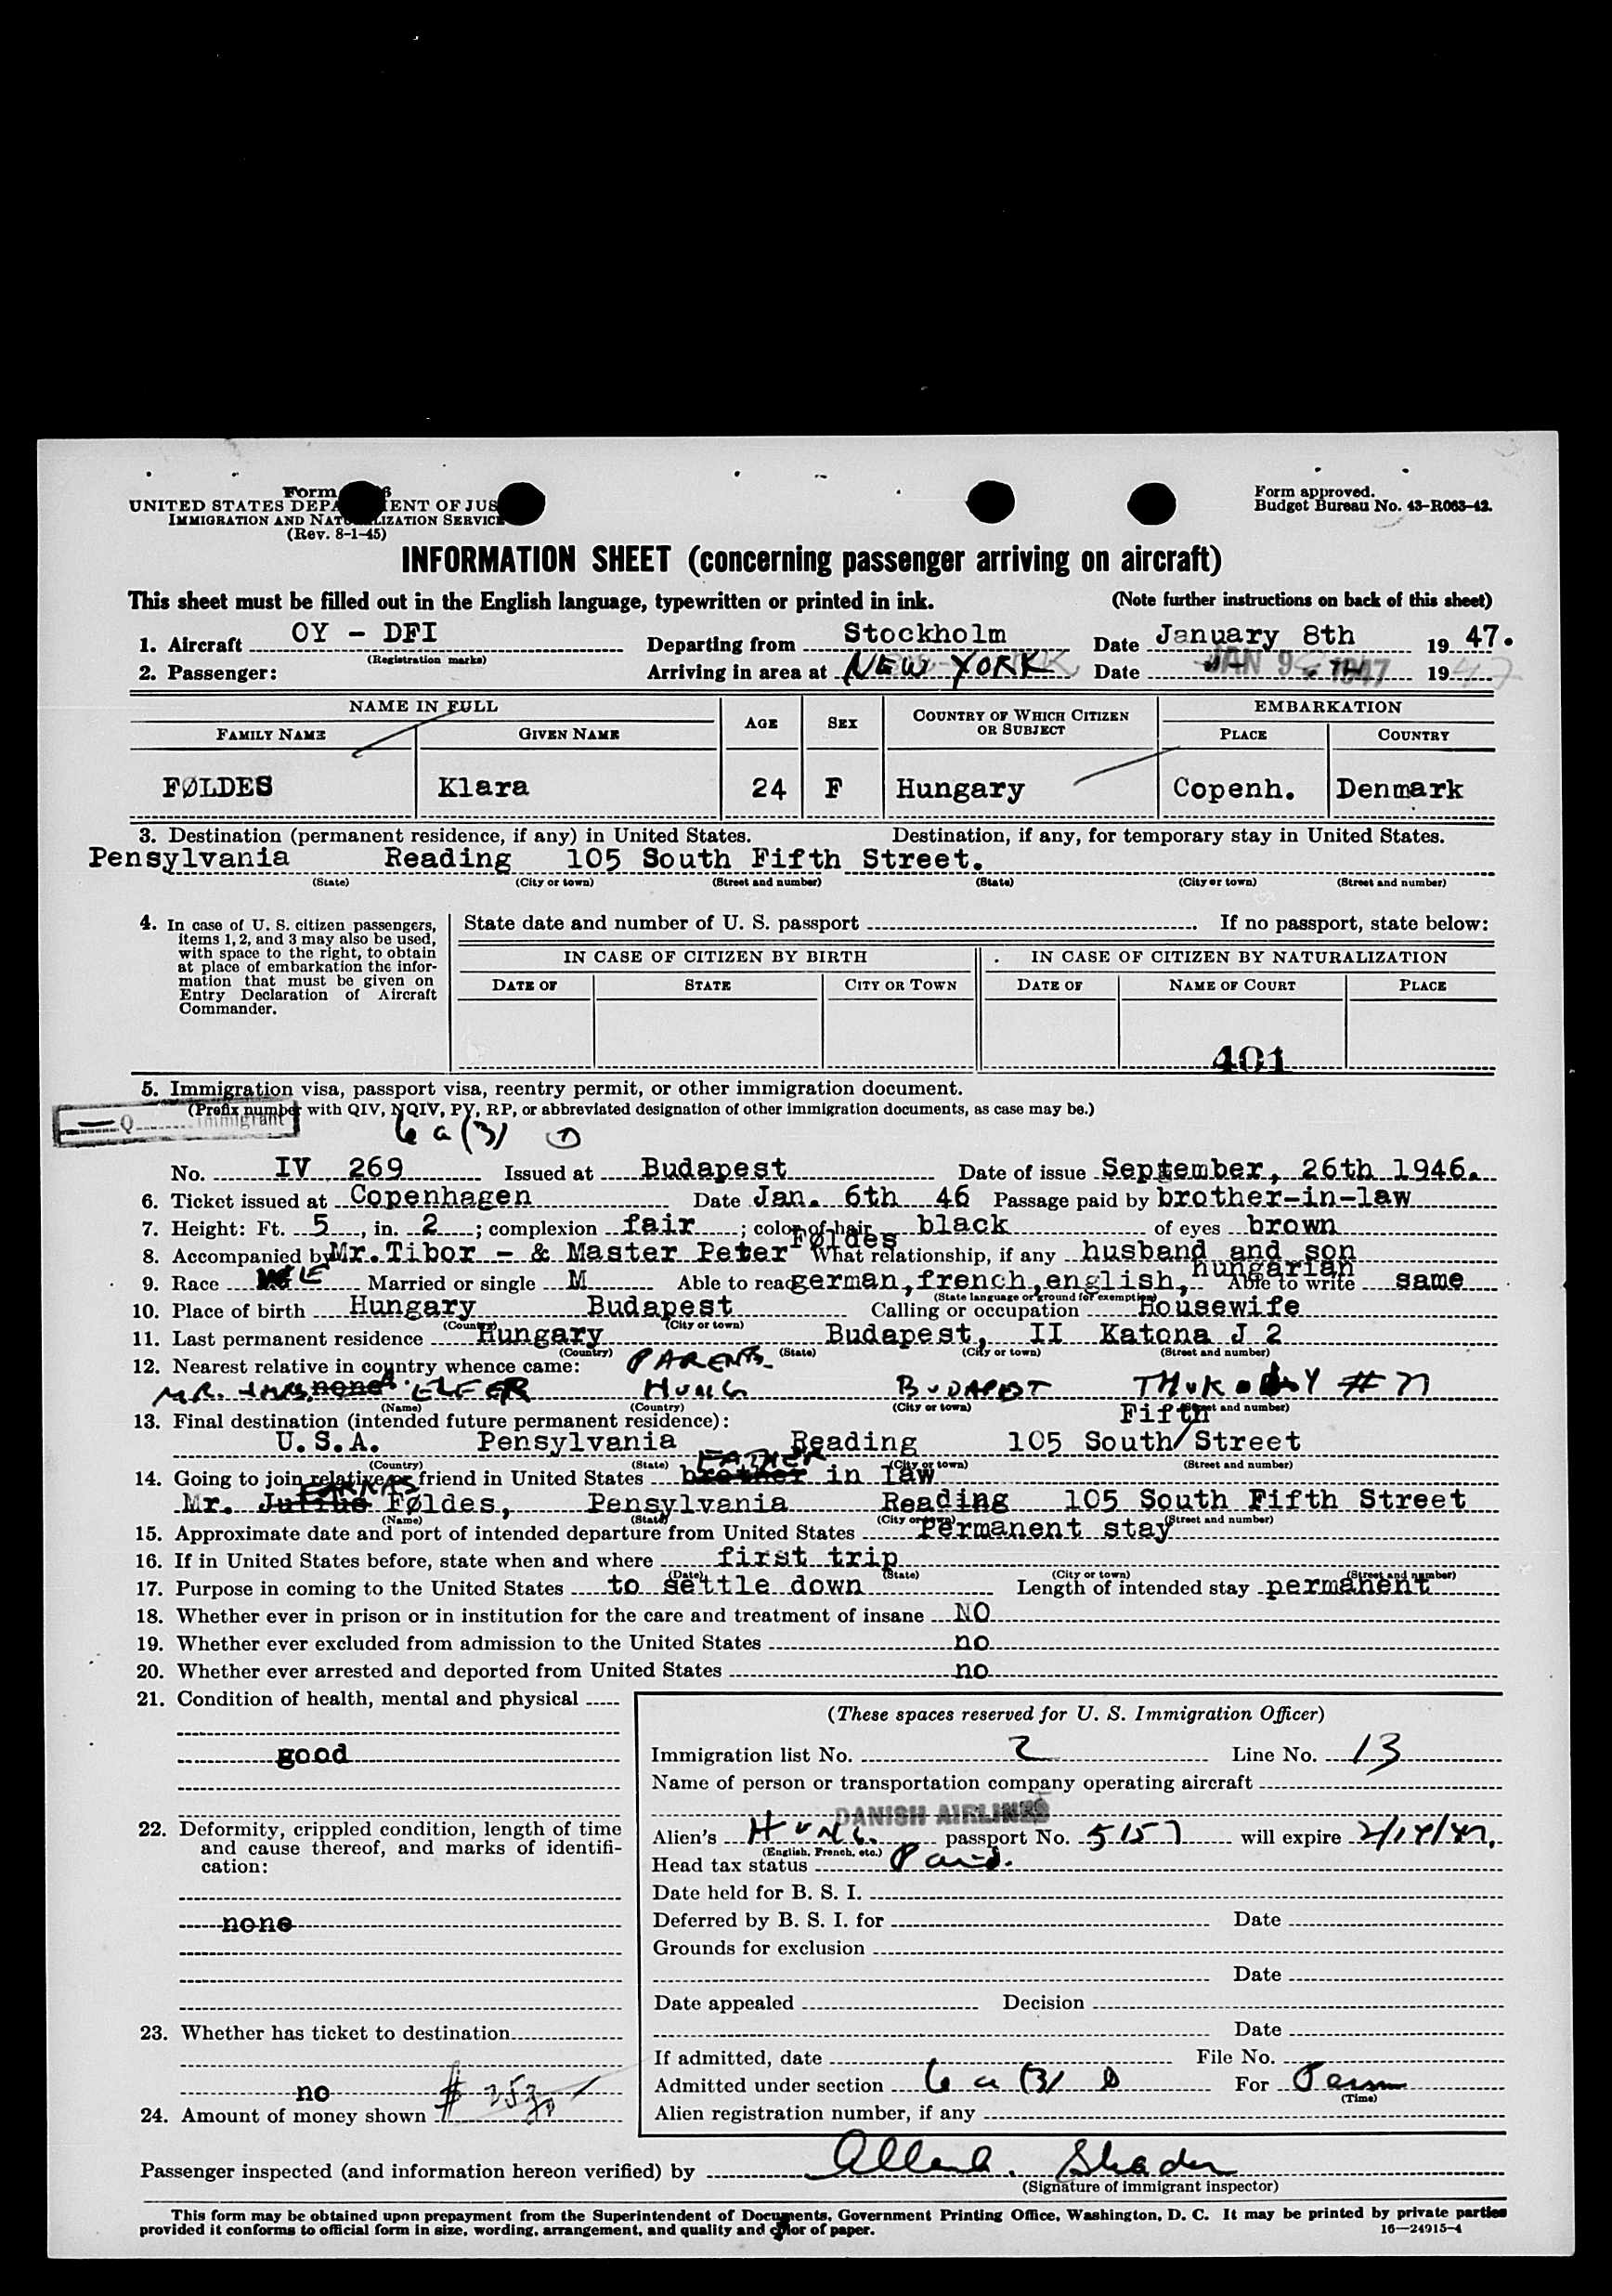 Form
UNITED STATES DEPARTMENT OF JUSTICE
IMMIGRATION AND NATURALIZATION SERVICE
(Rev. 8-1-45)
Form approved.
Budget Bureau No. 43-R063-42.
INFORMATION SHEET (concerning passenger arriving on aircraft)
This sheet must be filled out in the English language, typewritten or printed in ink. (Note further instructions on back of this sheet)
1. Aircraft OY - DFI Departing from Stockholm Date January 8th 19 47.
(Registration marks)
2. Passenger: Arriving in area at NEW YORK Date JAN 9 1947 19 47
NAME IN FULL AGE SEX COUNTRY OF WHICH CITIZEN OR SUBJECT EMBARKATION
FAMILY NAME GIVEN NAME PLACE COUNTRY
FØLDES Klara 24 F Hungary Copenh. Denmark
3. Destination (permanent residence, if any) in United States. Destination, if any, for temporary stay in United States.
Pensylvania Reading 105 South Fifth Street.
(State) (City or town) (Street and number) (State) (City or town) (Street and number)
4. In case of U. S. citizen passengers, items 1, 2, and 3 may also be used, with space to the right, to obtain at place of embarkation the information that must be given on Entry Declaration of Aircraft Commander.
State date and number of U. S. passport If no passport, state below:
IN CASE OF CITIZEN BY BIRTH IN CASE OF CITIZEN BY NATURALIZATION
DATE OF STATE CITY OR TOWN DATE OF NAME OF COURT PLACE
401
5. Immigration visa, passport visa, reentry permit, or other immigration document.
(Prefix number with QIV, NQIV, PV, RP, or abbreviated designation of other immigration documents, as case may be.)
Q immigrant
6 a (3)
No. IV 269 Issued at Budapest Date of issue September, 26th 1946.
6. Ticket issued at Copenhagen Date Jan. 6th 46 Passage paid by brother-in-law
7. Height: Ft. 5, in. 2; complexion fair; color of hair black of eyes brown
Føldes
8. Accompanied by Mr. Tibor - & Master Peter What relationship, if any husband and son
hungarian
9. Race Married or single M Able to read german, french, english, Able to write same
(State language or ground for exemption)
10. Place of birth Hungary Budapest Calling or occupation Housewife
(Country) (City or town)
11. Last permanent residence Hungary Budapest, II Katona J 2
(Country) (State) (City or town) (Street and number)
12. Nearest relative in country whence came: PARENTS
MR. & MRS. none HUNG BUDAPEST
(Name) (Country) (City or town) (Street and number)
13. Final destination (intended future permanent residence): Fifth
U.S.A. Pensylvania Reading 105 South/Street
(Country) (State) (City or town) (Street and number)
FATHER
14. Going to join relative or friend in United States brother in law
FARKAS
Mr. Julius Føldes, Pensylvania Reading 105 South Fifth Street
(Name) (State) (City or town) (Street and number)
15. Approximate date and port of intended departure from United States Permanent stay
16. If in United States before, state when and where first trip
(Date) (State) (City or town) (Street and number)
17. Purpose in coming to the United States to settle down Length of intended stay permanent
18. Whether ever in prison or in institution for the care and treatment of insane NO
19. Whether ever excluded from admission to the United States no
20. Whether ever arrested and deported from United States no
21. Condition of health, mental and physical
good
22. Deformity, crippled condition, length of time and cause thereof, and marks of identification:
none
23. Whether has ticket to destination
no
24. Amount of money shown $
(These spaces reserved for U. S. Immigration Officer)
Immigration list No. 2 Line No. 13
Name of person or transportation company operating aircraft
DANISH AIRLINES
Alien's HUNG. passport No. 5157 will expire
(English, French, etc.)
Head tax status Paid.
Date held for B. S. I.
Deferred by B. S. I. for Date
Grounds for exclusion
Date
Date appealed Decision
Date
If admitted, date File No.
Admitted under section 6 a (3) For Perm
(Time)
Alien registration number, if any
Passenger inspected (and information hereon verified) by
(Signature of immigrant inspector)
This form may be obtained upon prepayment from the Superintendent of Documents, Government Printing Office, Washington, D. C. It may be printed by private parties
provided it conforms to official form in size, wording, arrangement, and quality and color of paper. 16—24915-4